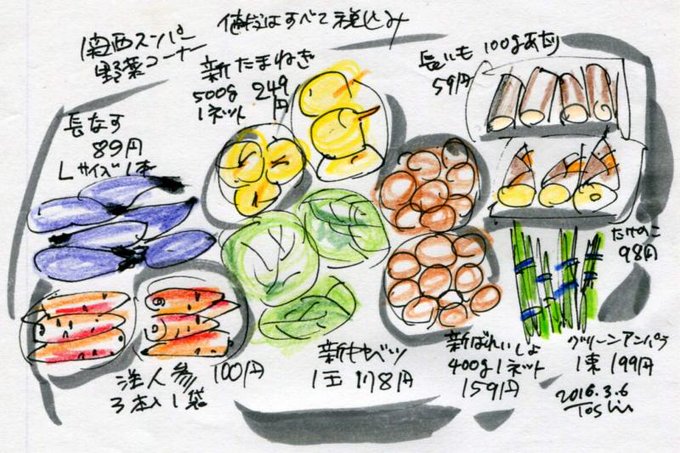 関西スーパー
野菜コーナー
値段はすべて税込み
新たまねぎ
500g 249円
1ネット
長いも 100gあたり
59円
長なす
89円
Lサイズ1本
たけのこ
98円
洋人参 100円
3本入1袋
新キャベツ
1玉 178円
新ばれいしょ
400g1ネット
159円
グリーンアスパラ
1束 199円
2016.3.6
Toshi